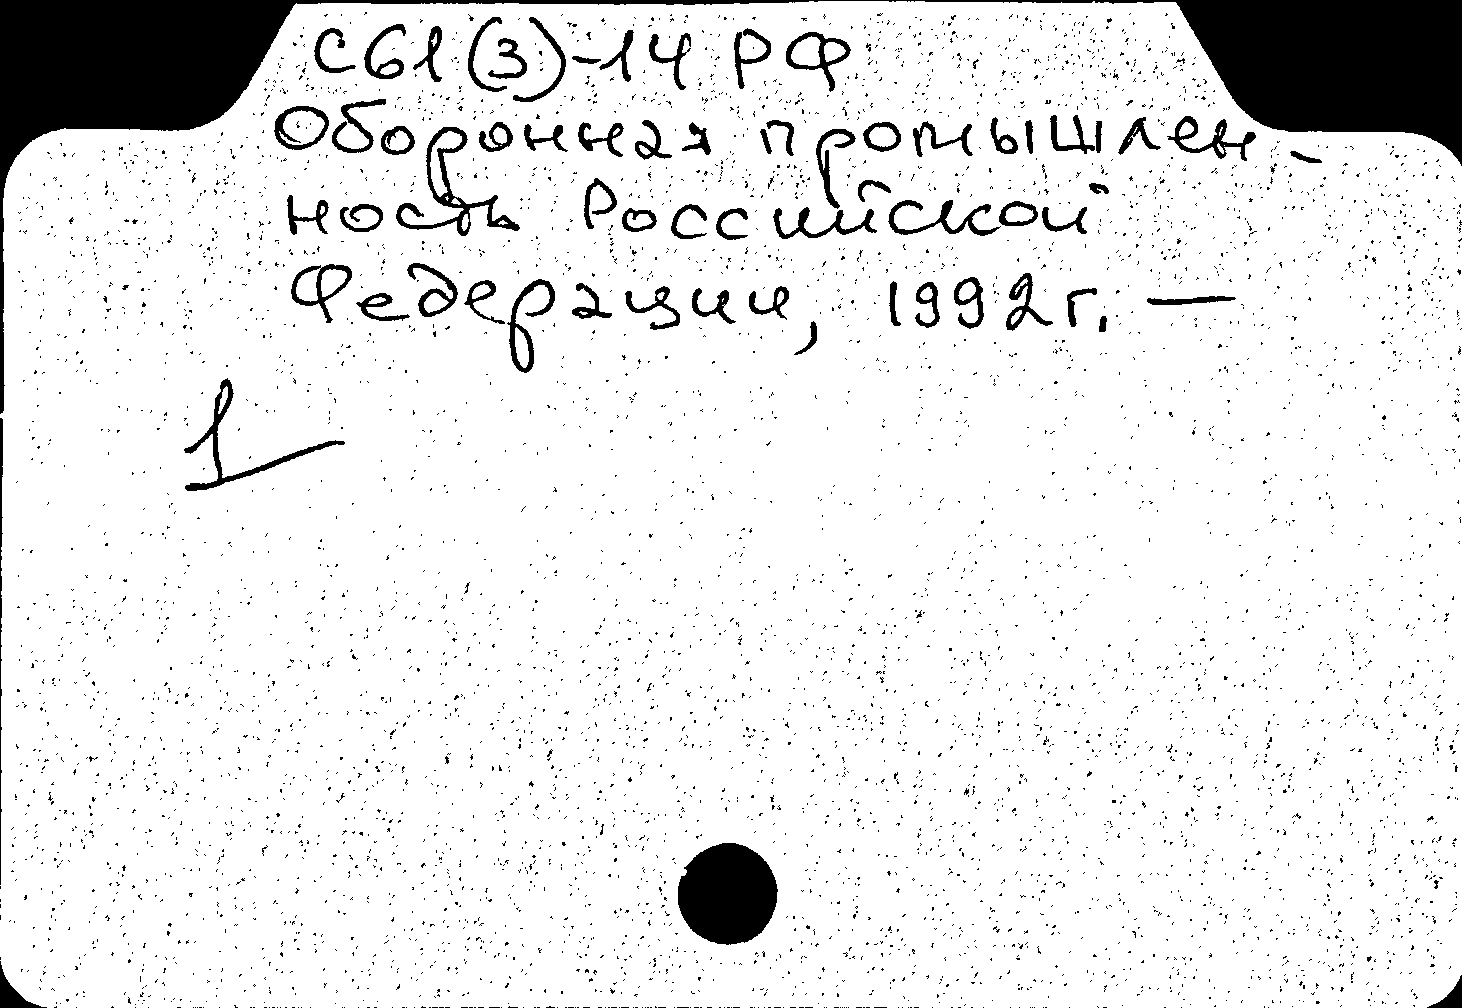 С61(3)-14 РФ
Оборонная промышлен-
ность Российской
Федерации, 1992г. —
1